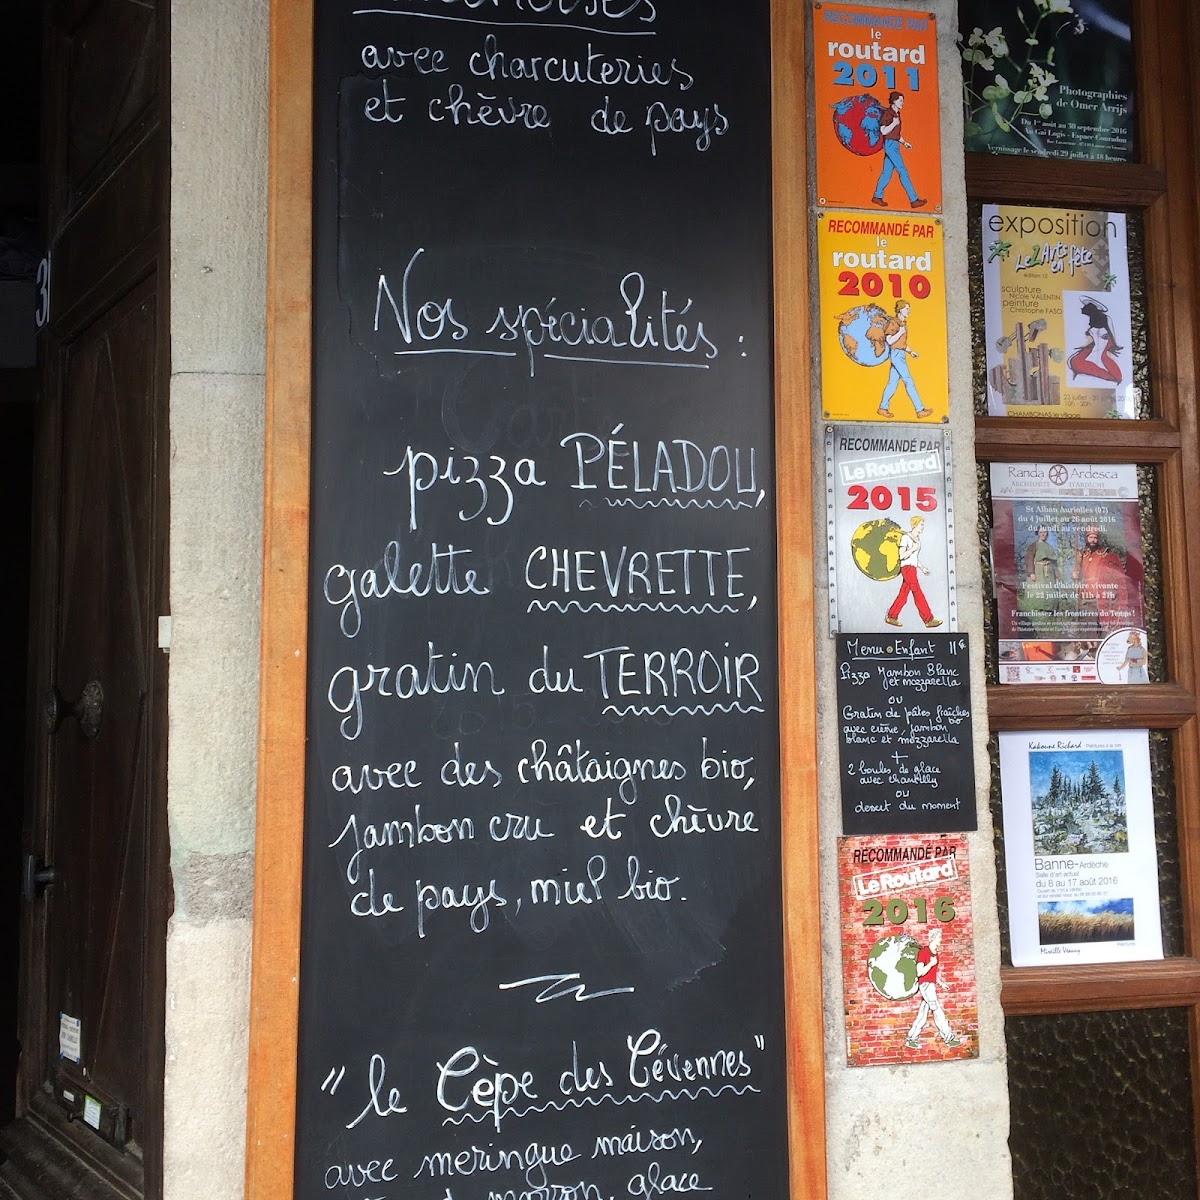 avec charcuteries
et chèvre de pays
Nos spécialités :
pizza PÉLADOU,
galette CHEVRETTE,
gratin du TERROIR
avec des châtaignes bio,
jambon cru et chèvre
de pays, miel bio.
"le Cèpe des Cévennes"
avec meringue maison,
marron, glace
RECOMMANDÉ PAR
le
routard
2011
RECOMMANDÉ PAR
le
routard
2010
RECOMMANDÉ PAR
Le Routard
2015
Menu Enfant 11€
Pizza Jambon Blanc
et mozzarella
ou
Gratin de pâtes fraîches
avec crème, jambon bio
blanc et mozzarella
+
2 boules de glace
avec chantilly
ou
dessert du moment
RECOMMANDÉ PAR
Le Routard
2016
Photographies
de Omer Arrijs
Du 1er août au 30 septembre 2016
Au Gai Logis - Espace Couradou
Vernissage le vendredi 29 juillet à 18 heures
exposition
Le2Arts
en fête
édition 12
sculpture
Nicole VALENTIN
peinture
Christophe FASO
10h - 20h
CHAMBONAS le village
Randa Ardesca
ARCHÉOSITE D'ARDÈCHE
St Alban Auriolles (07)
du 4 juillet au 26 août 2016
du lundi au vendredi
Festival d'histoire vivante
le 22 juillet de 11h à 21h
Franchissez les frontières du Temps !
Kakoune Richard
Banne-Ardèche
Salle d'art actuel
du 8 au 17 août 2016
Mireille Vianny
Peintures